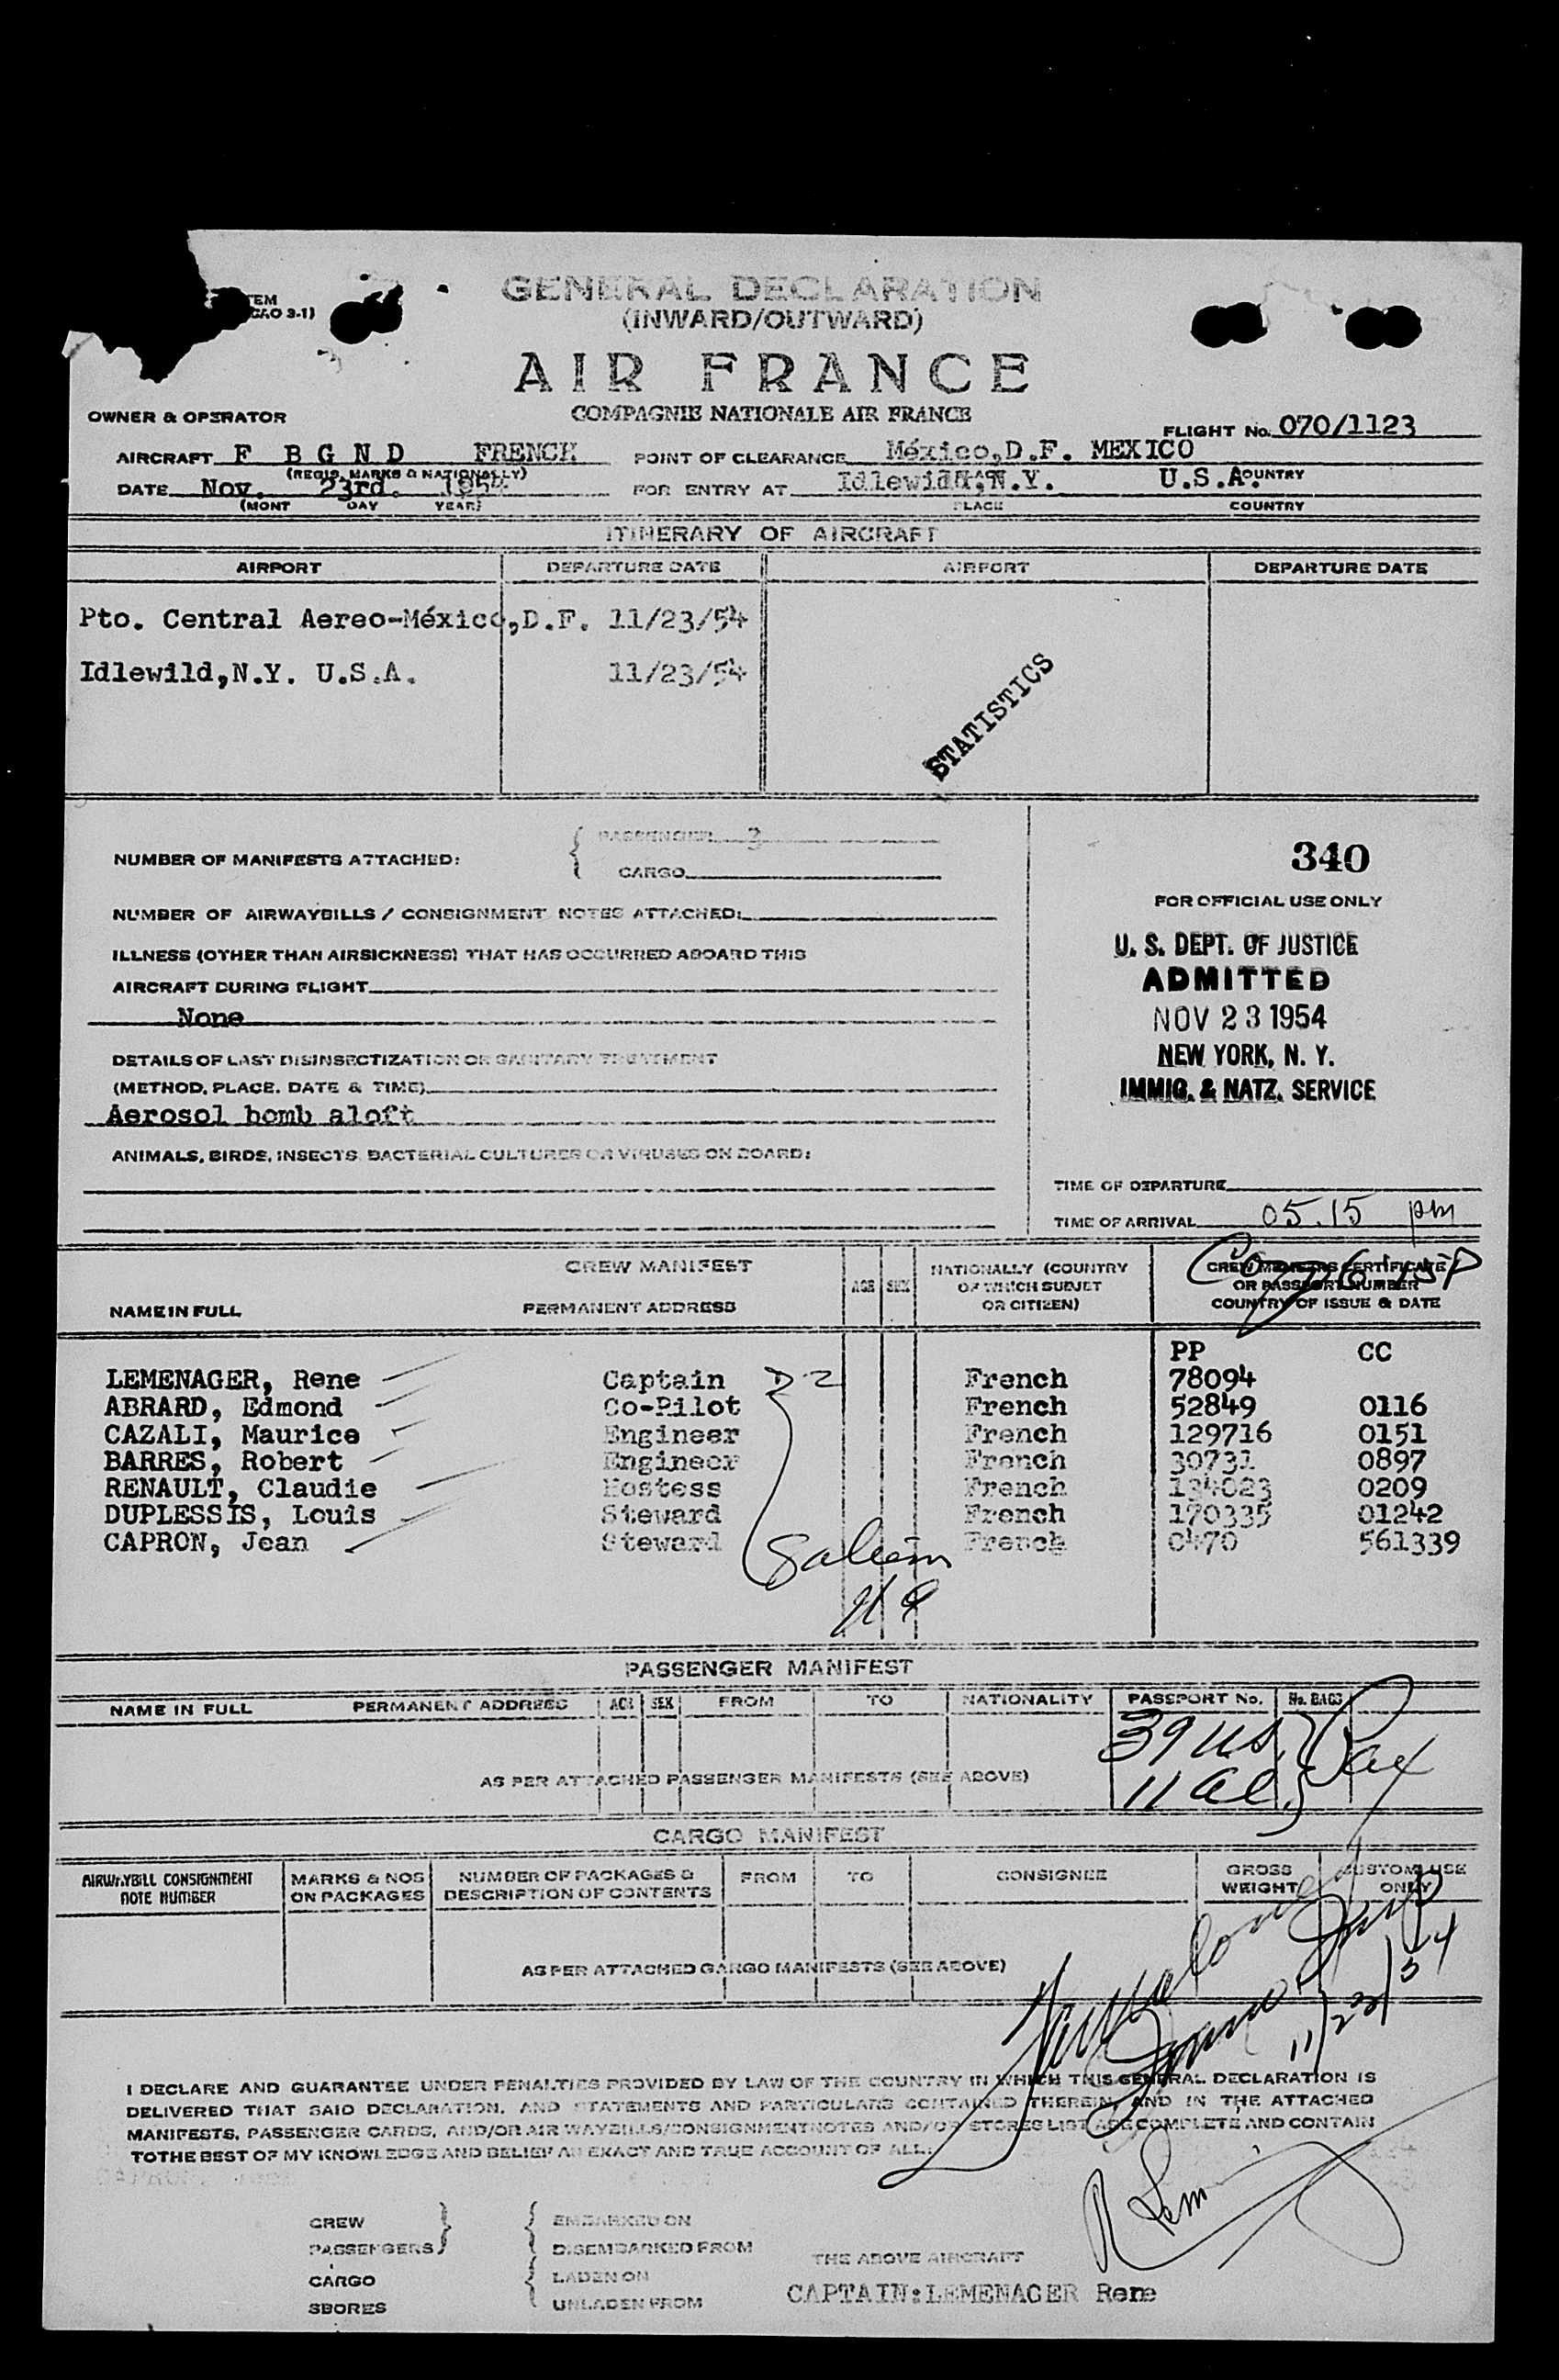 TEM
CAO 3-1)
GENERAL DECLARATION
(INWARD/OUTWARD)
AIR FRANCE
COMPAGNIE NATIONALE AIR FRANCE
OWNER & OPERATOR
FLIGHT No. 070/1123
AIRCRAFT F B G N D FRENCH POINT OF CLEARANCE México,D.F. MEXICO
(REGIS. MARKS & NATIONALLY) COUNTRY
DATE Nov. 23rd. 1954 FOR ENTRY AT Idlewild,N.Y. U.S.A.
(MONT DAY YEAR) PLACE COUNTRY
ITINERARY OF AIRCRAFT
AIRPORT DEPARTURE DATE AIRPORT DEPARTURE DATE
Pto. Central Aereo-México,D.F. 11/23/54
Idlewild,N.Y. U.S.A. 11/23/54
STATISTICS
NUMBER OF MANIFESTS ATTACHED: PASSENGER 3
CARGO
340
NUMBER OF AIRWAYBILLS / CONSIGNMENT NOTES ATTACHED:
FOR OFFICIAL USE ONLY
ILLNESS (OTHER THAN AIRSICKNESS) THAT HAS OCCURRED ABOARD THIS
AIRCRAFT DURING FLIGHT
None
U. S. DEPT. OF JUSTICE
ADMITTED
NOV 23 1954
NEW YORK, N. Y.
IMMIG. & NATZ. SERVICE
DETAILS OF LAST DISINSECTIZATION OR SANITARY TREATMENT
(METHOD, PLACE, DATE & TIME)
Aerosol bomb aloft
ANIMALS, BIRDS, INSECTS, BACTERIAL CULTURES OR VIRUSES ON BOARD:
TIME OF DEPARTURE
TIME OF ARRIVAL 05.15 pm
CREW MANIFEST
NAME IN FULL PERMANENT ADDRESS AGE SEX NATIONALLY (COUNTRY
OF WHICH SUBJET
OR CITIZEN)
CREW MEMBERS CERTIFICATE
OR PASSPORT NUMBER
COUNTRY OF ISSUE & DATE
PP CC
LEMENAGER, Rene Captain D-2 French 78094
ABRARD, Edmond Co-Pilot French 52849 0116
CAZALI, Maurice Engineer French 129716 0151
BARRES, Robert Engineer French 30731 0897
RENAULT, Claudie Hostess French 134023 0209
DUPLESSIS, Louis Steward French 170335 01242
CAPRON, Jean Steward French 0470 561339
PASSENGER MANIFEST
NAME IN FULL PERMANENT ADDRESS AGE SEX FROM TO NATIONALITY PASSPORT No. No. BAGS
39 US
11 al. Pax
AS PER ATTACHED PASSENGER MANIFESTS (SEE ABOVE)
CARGO MANIFEST
AIRWAYBILL CONSIGNMENT
NOTE NUMBER
MARKS & NOS
ON PACKAGES
NUMBER OF PACKAGES &
DESCRIPTION OF CONTENTS
FROM TO CONSIGNEE GROSS
WEIGHT
CUSTOMS USE
ONLY
AS PER ATTACHED CARGO MANIFESTS (SEE ABOVE)
11/23/54
I DECLARE AND GUARANTEE UNDER PENALTIES PROVIDED BY LAW OF THE COUNTRY IN WHICH THIS GENERAL DECLARATION IS
DELIVERED THAT SAID DECLARATION, AND STATEMENTS AND PARTICULARS CONTAINED THEREIN, AND IN THE ATTACHED
MANIFESTS, PASSENGER CARDS, AND/OR AIR WAYBILLS/CONSIGNMENTNOTES AND/OR STORES LIST ARE COMPLETE AND CONTAIN
TOTHE BEST OF MY KNOWLEDGE AND BELIEF AN EXACT AND TRUE ACCOUNT OF ALL.
CREW EMBARKED ON
PASSENGERS DISEMBARKED FROM
THE ABOVE AIRCRAFT
CARGO LADEN ON
SBORES UNLADEN FROM
CAPTAIN:LEMENAGER Rene